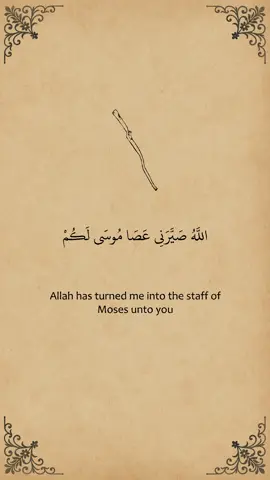 اللَّهُ صَيَّرَنِي عَصَا مُوسَى لَكُمْ
Allah has turned me into the staff of
Moses unto you